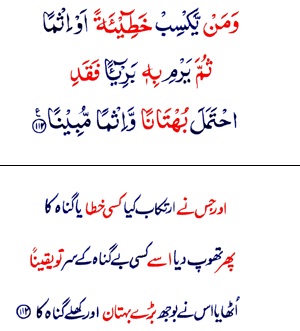 وَمَنْ يَّكْسِبْ خَطِيْٓـَٔةً اَوْ اِثْمًا
ثُمَّ يَرْمِ بِهٖ بَرِيْٓـًٔا فَقَدِ
احْتَمَلَ بُهْتَانًا وَّاِثْمًا مُّبِيْنًا ﴿۱۱۲﴾ ع
اور جس نے ارتکاب کیا کسی خطا یا گناہ کا
پھر تھوپ دیا اسے کسی بے گناہ کے سر تو یقیناً
اُٹھایا اس نے بوجھ بڑے بہتان اور کھلے گناہ کا ﴿۱۱۲﴾